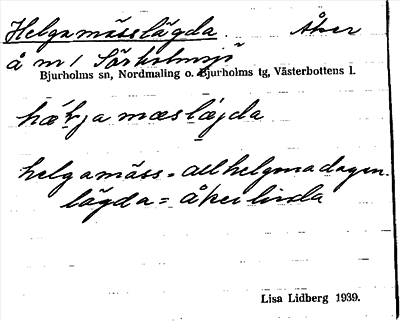 Helgamässlägda. Åker
å m / Sörholmsjö
Bjurholms sn, Nordmaling o. Bjurholms tg, Västerbottens l.
hæl̥ja mæslǻjda
helgamäss = allhelgonadagen.
lägda = åkerlinda
Lisa Lidberg 1939.